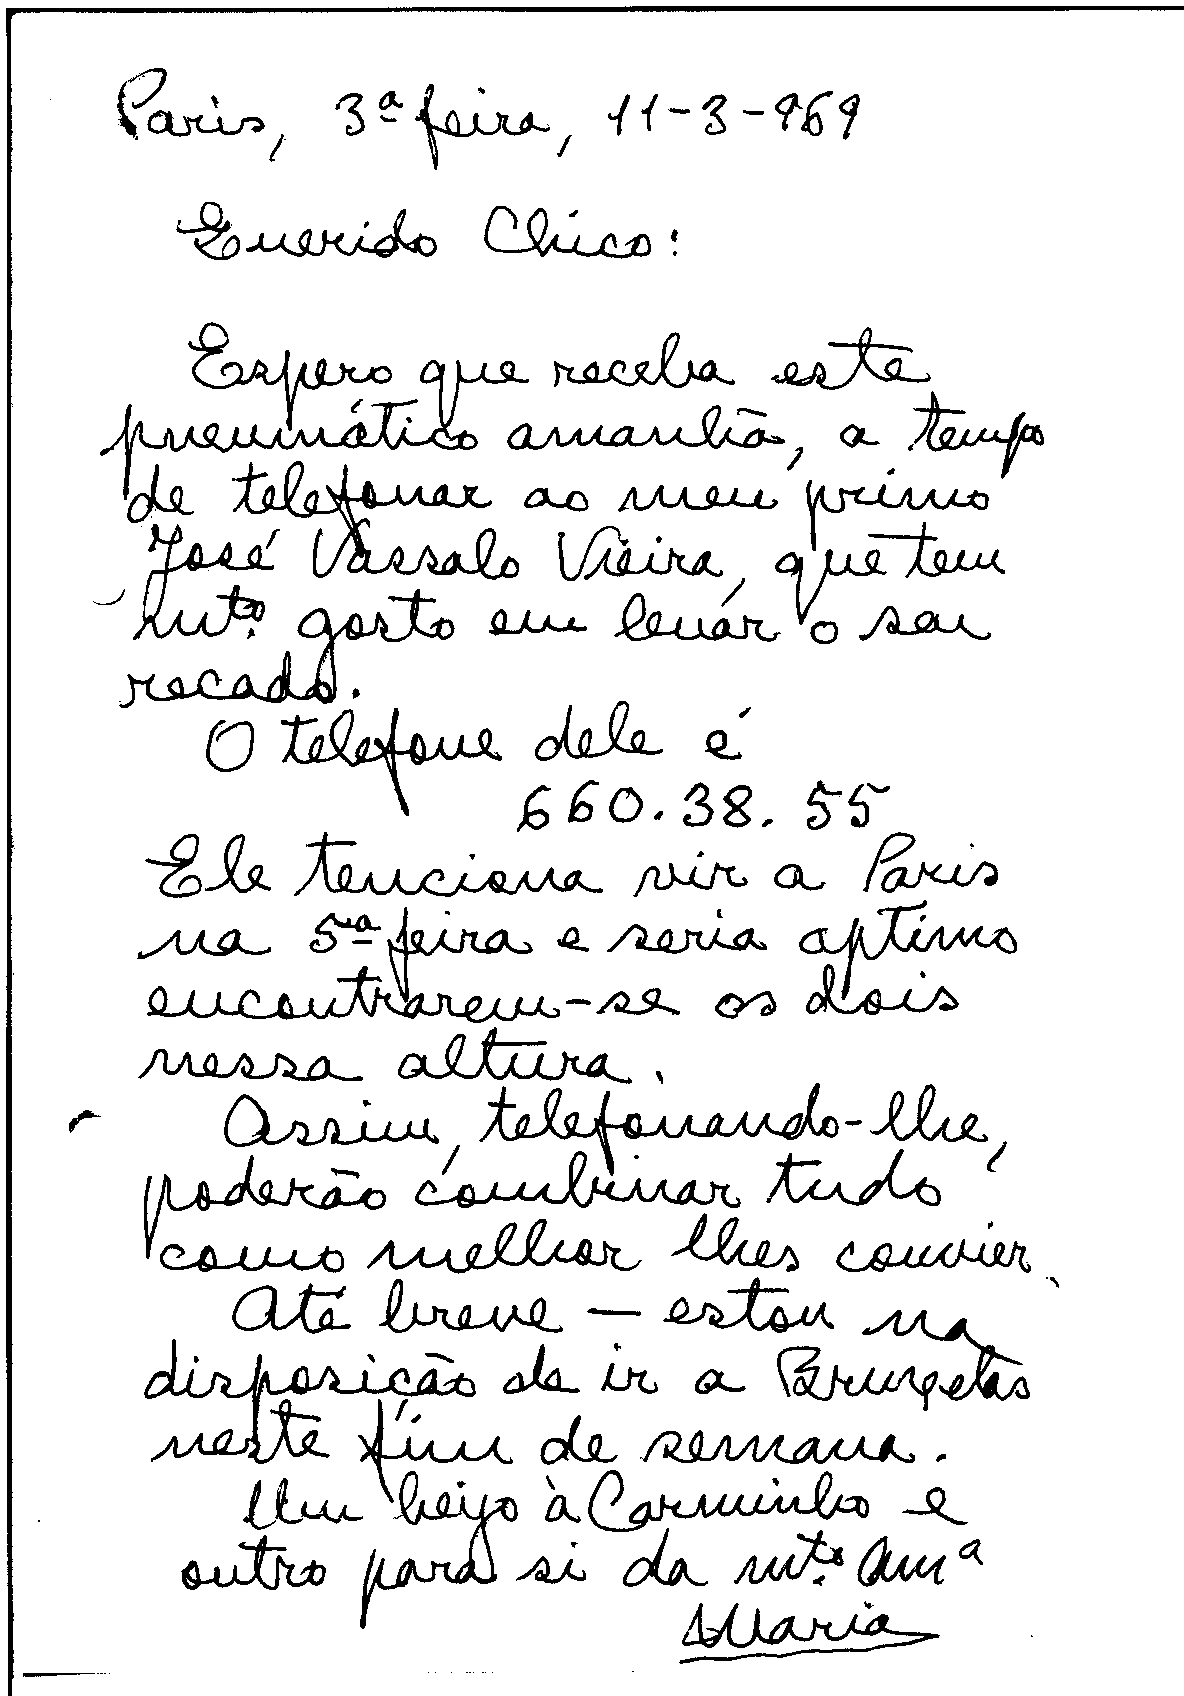 Paris, 3ª feira, 11-3-969
Querido Chico:
Espero que receba este
pneumático amanhã, a tempo
de telefonar ao meu primo
José Vassalo Vieira, que tem
mtº. gosto em levar o seu
recado.
O telefone dele é
660.38.55
Ele tenciona vir a Paris
na 5ª feira e seria óptimo
encontrarem-se os dois
nessa altura.
Assim, telefonando-lhe,
poderão combinar tudo
como melhor lhes convier.
Até breve — estou na
disposição de ir a Bruxelas
neste fim de semana.
Um beijo à Carminho e
outro para si da mtº. amª
Maria